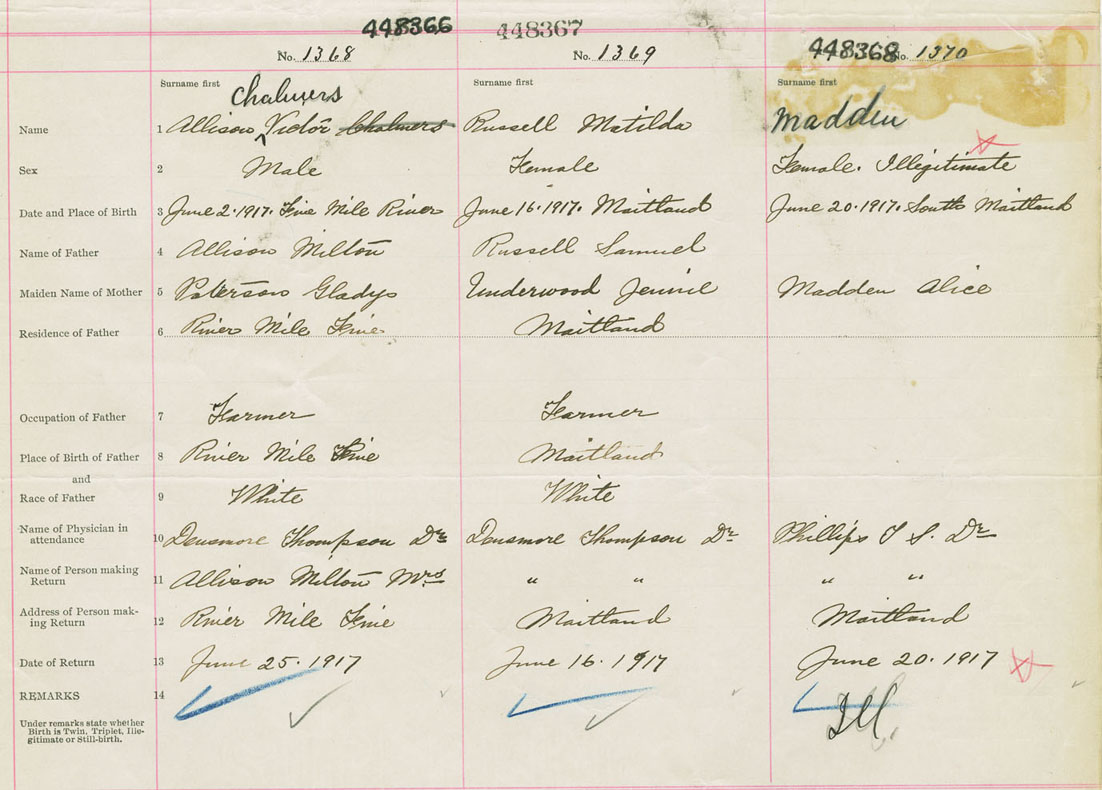 448366 448367 448368
No. 1368 No. 1369 No. 1370
Surname first Surname first Surname first
Chalmers
Name 1 Allison Victor Chalmers Russell Matilda Madden
Sex 2 Male Female Female. Illegitimate
Date and Place of Birth 3 June 2. 1917. Five Mile River June 16. 1917. Maitland June 20. 1917. South Maitland
Name of Father 4 Allison Milton Russell Samuel
Maiden Name of Mother 5 Paterson Gladys Underwood Jennie Madden Alice
Residence of Father 6 River Mile Five Maitland
Occupation of Father 7 Farmer Farmer
Place of Birth of Father 8 River Mile Five Maitland
and
Race of Father 9 White White
Name of Physician in
attendance 10 Densmore Thompson Dr Densmore Thompson Dr Phillips T S. Dr
Name of Person making
Return 11 Allison Milton Mrs " " " "
Address of Person mak-
ing Return 12 River Mile Five Maitland Maitland
Date of Return 13 June 25. 1917 June 16. 1917 June 20. 1917
REMARKS 14 Ill.
Under remarks state whether
Birth is Twin, Triplet, Ille-
gitimate or Still-birth.